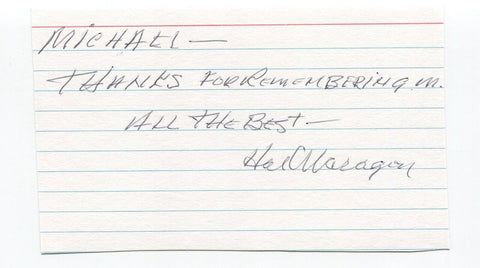 MICHAEL —
THANKS FOR REMEMBERING m.
ALL THE BEST —
Hal Naragon